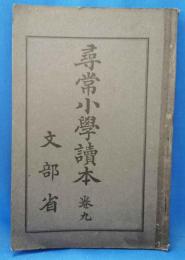 尋常小學讀本 巻九
文部省